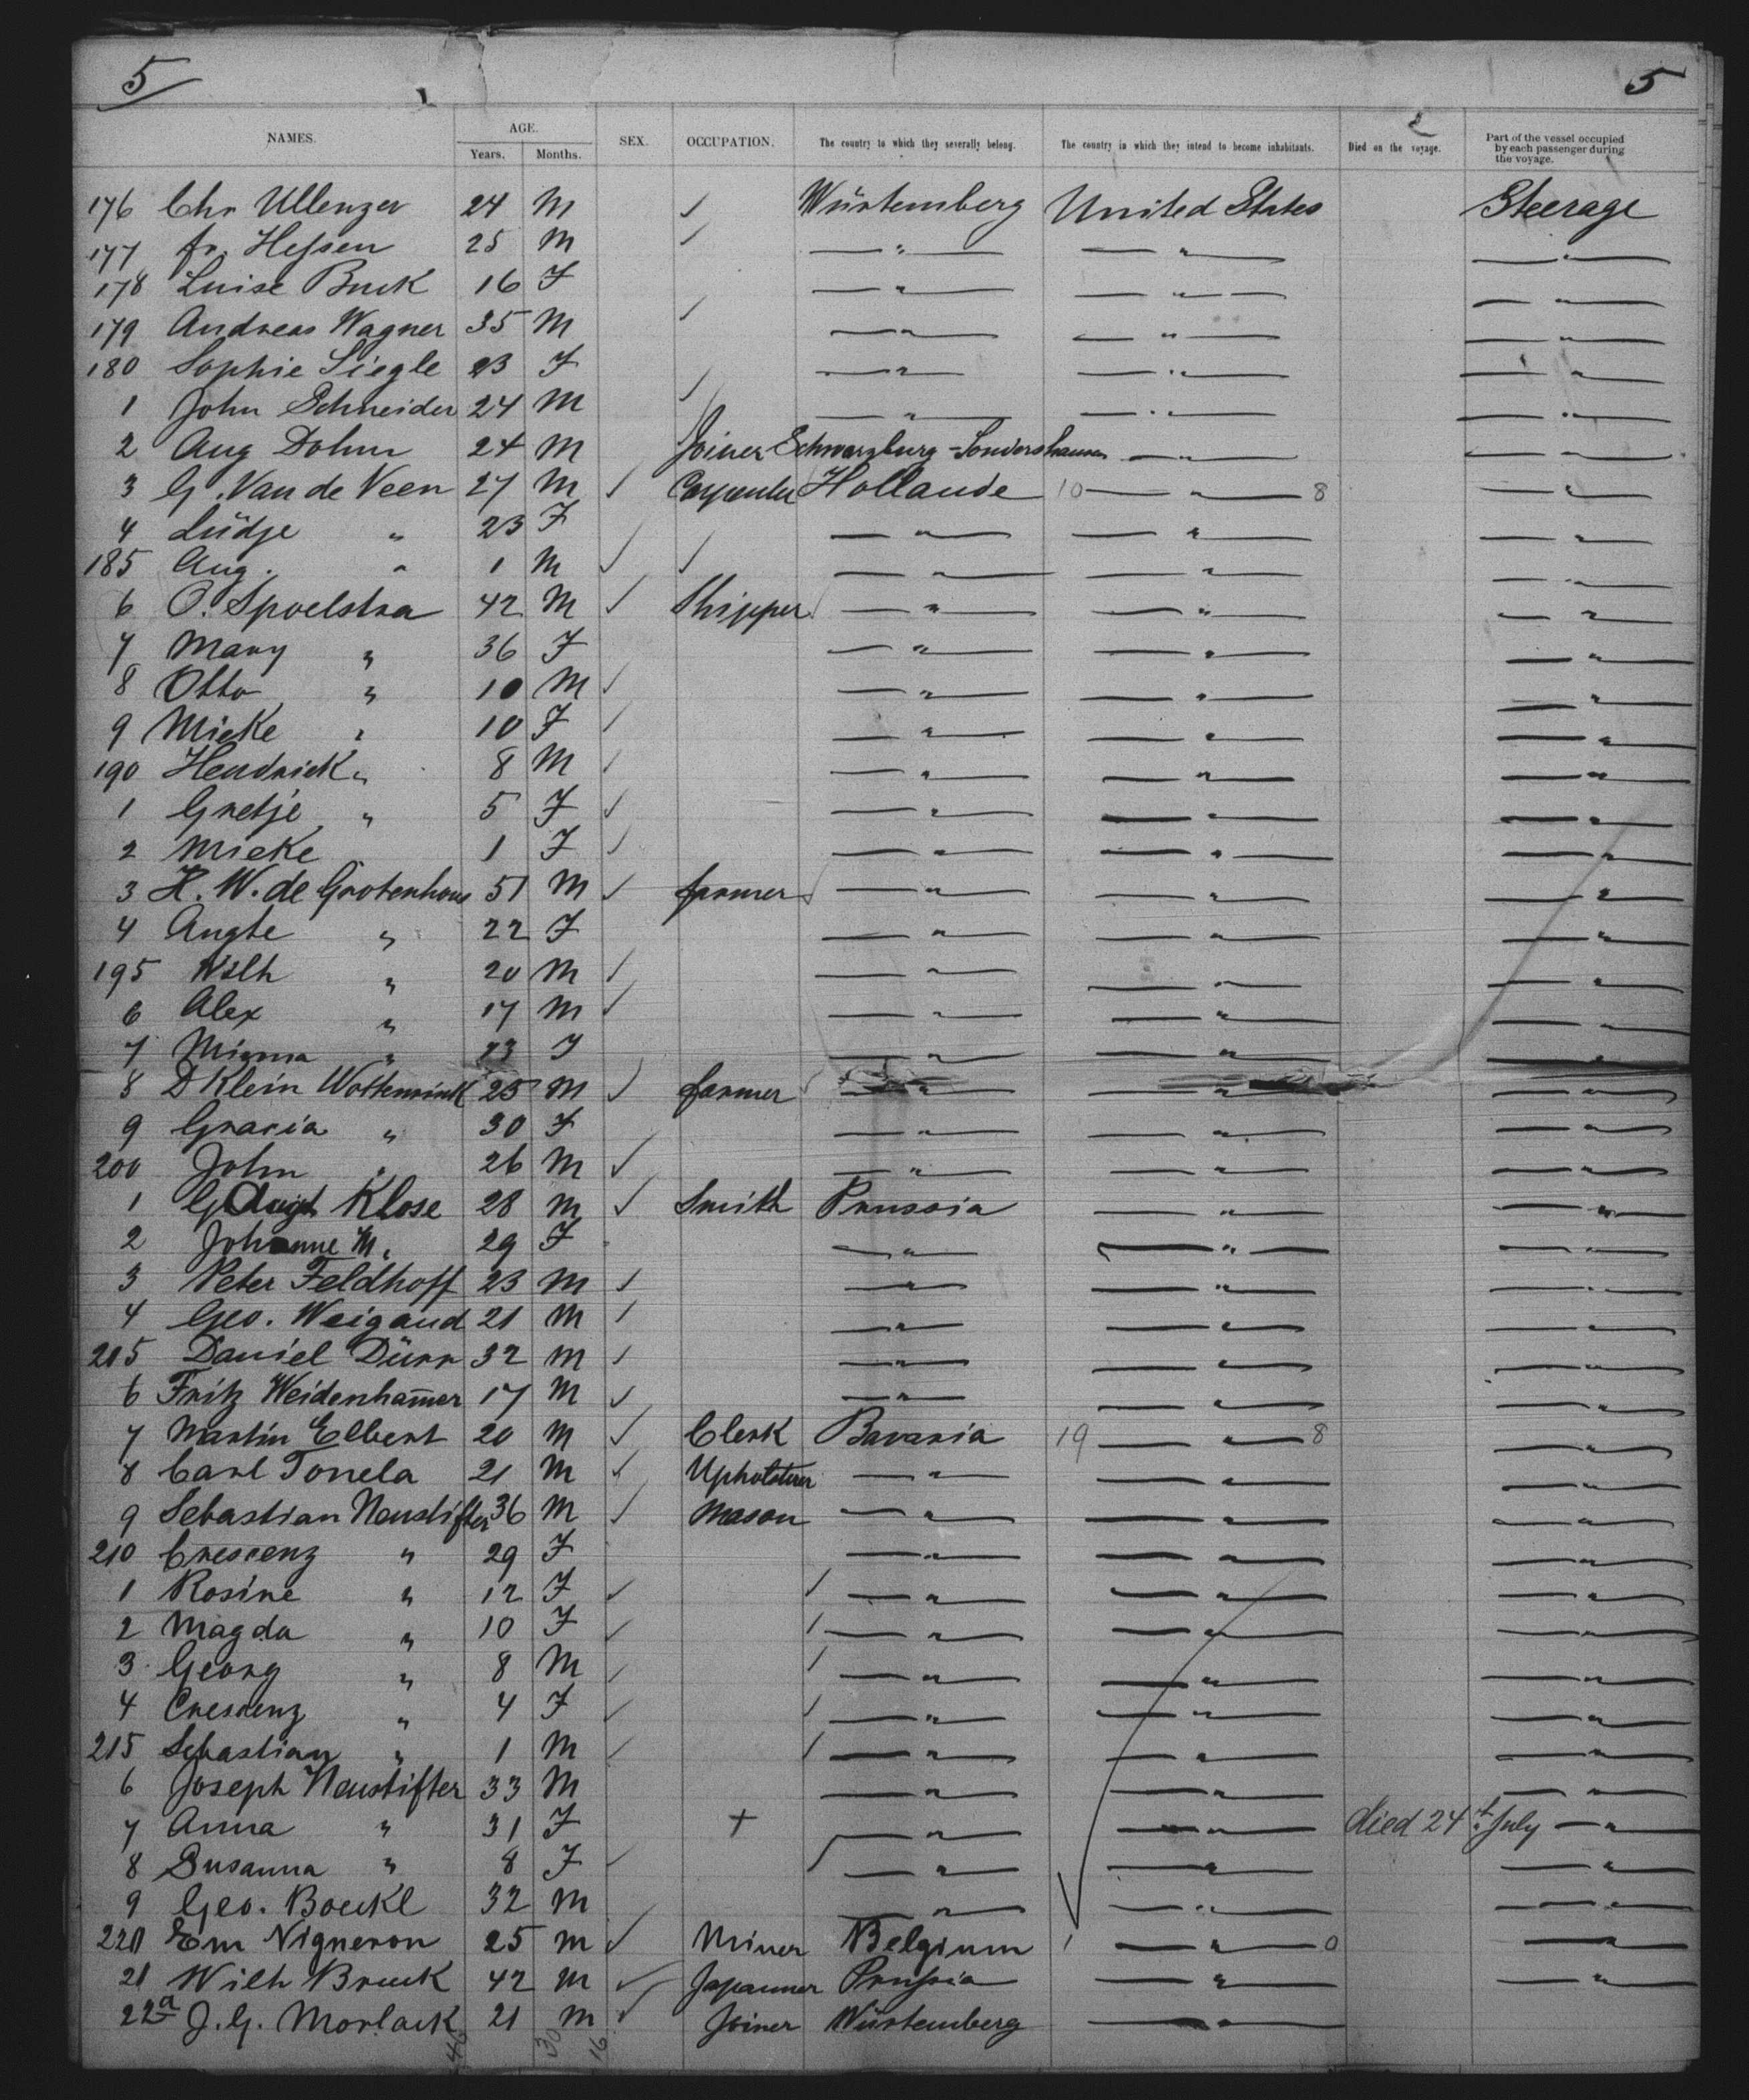 5 5
NAMES. AGE. Years. Months. SEX. OCCUPATION. The country to which they severally belong. The country in which they intend to become inhabitants. Died on the voyage. Part of the vessel occupied by each passenger during the voyage.
176 Chr Ullenzer 24 M ✓ Würtemberg United States Steerage
177 fr. Hessen 25 M ✓ — " — — " — — " —
178 Luise Buck 16 F — " — — " — — " —
179 Andreas Wagner 35 M ✓ — " — — " — — " —
180 Sophie Siegle 23 F — " — — " — — " —
1 John Schneider 24 M ✓ — " — — " — — " —
2 Aug Dohm 24 M Joiner Schwarzburg-Sondershausen — " — — " —
3 G. Van de Veen 27 M ✓ Carpenter Hollande 10 — " — 8 — " —
4 Lüdje " 23 F — " — — " — — " —
185 Aug. " 1 M ✓ ✓ — " — — " — — " —
6 O. Spoelstra 42 M ✓ Shipper — " — — " — — " —
7 Mary " 36 F — " — — " — — " —
8 Otto " 10 M ✓ — " — — " — — " —
9 Mieke " 10 F ✓ — " — — " — — " —
190 Hendrick " 8 M ✓ — " — — " — — " —
1 Gretje " 5 F ✓ — " — — " — — " —
2 Mieke 1 F ✓ — " — — " — — " —
3 H. W. de Grotenhous 51 M ✓ farmer — " — — " — — " —
4 Augte " 22 F — " — — " — — " —
195 Wilh " 20 M ✓ — " — — " — — " —
6 Alex " 17 M ✓ — " — — " — — " —
7 Minna " 23 F — " — — " — — " —
8 D Klein Wottenrink 25 M ✓ farmer — " — — " — — " —
9 Graria " 30 F — " — — " — — " —
200 John " 26 M ✓ — " — — " — — " —
1 G Augt Klose 28 M ✓ Smith Prussia — " — — " —
2 Johanne M. 29 F — " — — " — — " —
3 Peter Feldhoff 23 M ✓ — " — — " — — " —
4 Geo. Weigand 21 M ✓ — " — — " — — " —
205 Daniel Dürr 32 M ✓ — " — — " — — " —
6 Fritz Weidenham̄er 17 M ✓ — " — — " — — " —
7 Martin Elbert 20 M ✓ Clerk Bavaria 19 — " — 8 — " —
8 Carl Tonela 21 M ✓ Upholsterer — " — — " — — " —
9 Sebastian Neustifter 36 M ✓ Mason — " — — " — — " —
210 Crescenz " 29 F — " — — " — — " —
1 Rosine " 12 F ✓ ✓ — " — — " — — " —
2 Magda " 10 F ✓ ✓ — " — — " — — " —
3 Georg " 8 M ✓ ✓ — " — — " — — " —
4 Crescenz " 4 F ✓ ✓ — " — — " — — " —
215 Sebastian " 1 M ✓ ✓ — " — — " — — " —
6 Joseph Neustifter 33 M — " — — " — — " —
7 Anna " 31 F + — " — — " — died 24t July — " —
8 Susanna " 8 F ✓ — " — — " — — " —
9 Geo. Boeckl 32 M — " — — " — — " —
220 Em Vigneron 25 M ✓ Miner Belgium 1 — " — 0 — " —
21 Wilh Bruck 42 M ✓ Japanner Prussia — " — — " —
22a J. G. Morlack 21 M ✓ Joiner Würtemberg — " —
46 30 16